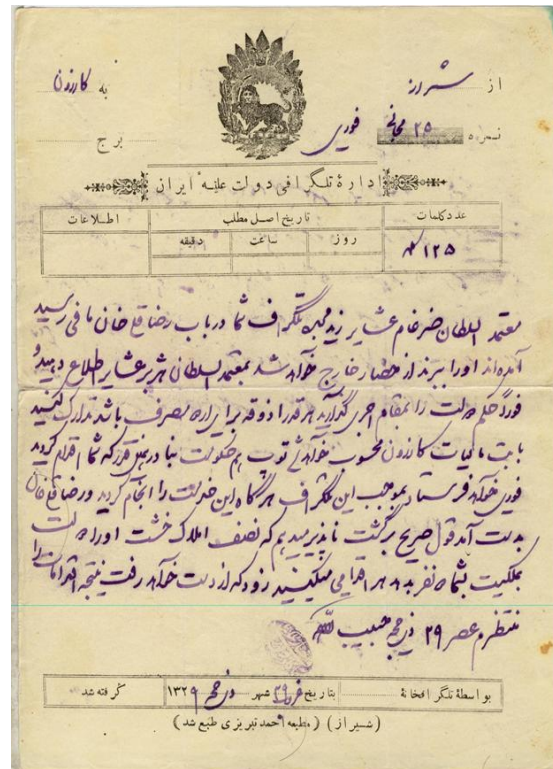 از شیراز به کازرون
نمره ۲۵ مجانی فوری برج
ادارهٔ تلگرافی دولت علیهٔ ایران
عدد کلمات تاریخ اصل مطلب اطلاعات
روز ساعت دقیقه
۱۲۵
معتمد السلطان ضرغام عشایر زید مجده تلگراف شما در باب رضا قلی خان مافی رسید
آمده‌اند او را ببرند از خارج خواهد شد بمعتمد السلطان هژبر عشایر اطلاع دهید و
فوراً حکم دولت را بمقام اجری گذارید هر قدر آذوقه برای مصرف باشد تدارک کنید
بابت مالیات کازرون محسوب خواهد توپ هم خواست بنا در که شما اقدام کردید
فوری خواهد فرستاد بموجب این تلگراف هرگاه این خدمت را انجام کردید و رضا قلی خان
بدست آمد قول صریح برگشت ناپذیر میدهم که نصف املاک خشت او را دولت
بملکیت بشما دو نفر بدهد هر اقدامی میکنید زود که از دست خواهد رفت نتیجه اقدامات را
منتظرم عصر ۲۹ ذیحجه حبیب الله
بواسطهٔ تلگرافخانهٔ بتاریخ شهر ذیحجه ۱۳۲۹ گرفته شد
(شیراز) (مطبعه احمد تبریزی طبع شد)